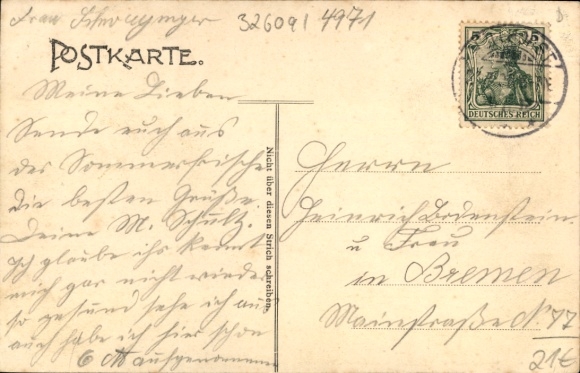 Frau
326091 4971
POSTKARTE.
5 5
DEUTSCHES REICH
Meine Lieben
Sende euch aus
der Sommerfrische
die besten Grüße.
Deine M. Schulz.
Ich glaube ihr kennt
mich gar nicht wieder
so gesund sehe ich aus
auch habe ich hier schon
6 aufgenommen
Nicht über diesen Strich schreiben.
Herrn
Heinrich Bodenstein
u Frau
in Bremen
Mainstraße No 77
21€